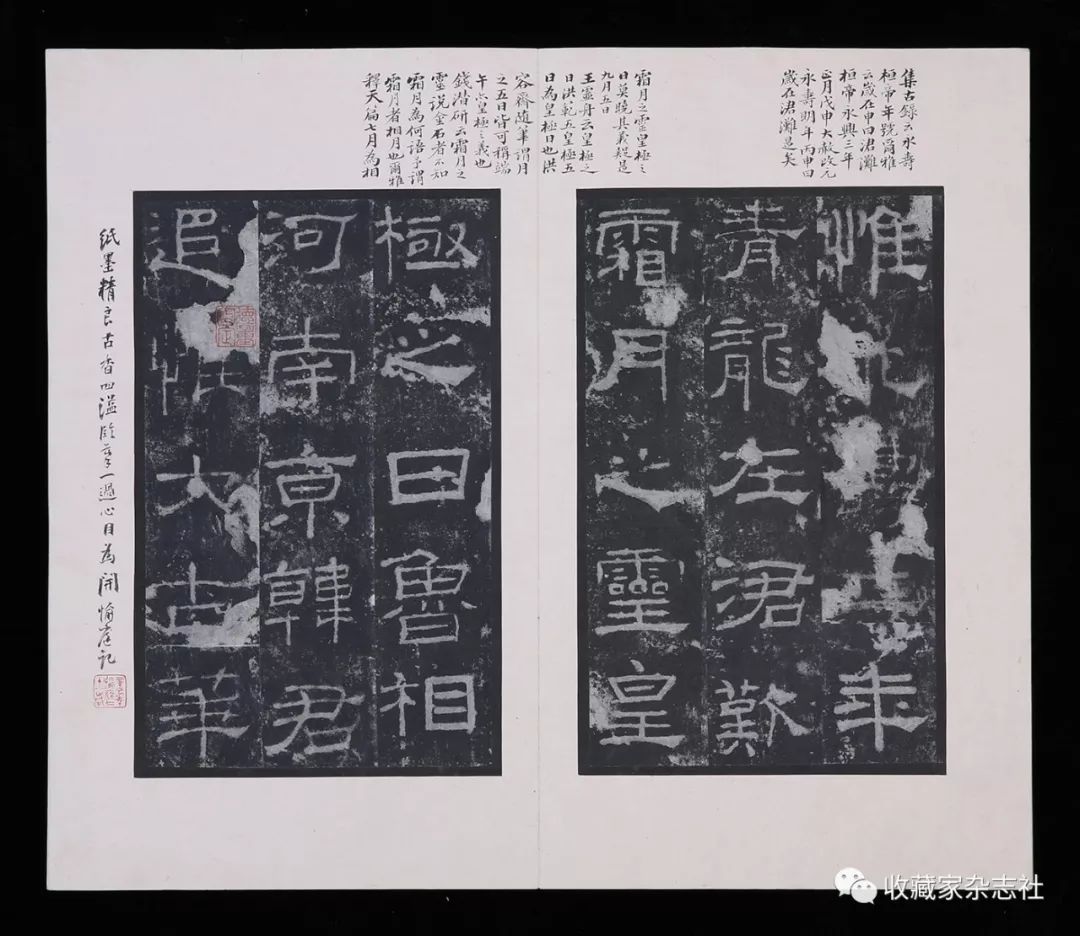 集古錄云永壽
桓帝年號爾雅
云歲在申曰涒灘
桓帝永興三年
正月戊申大赦改元
永壽明年丙申曰
歲在涒灘是矣
霜月之靈皇極之
日莫曉其義疑是
九月五日
王靈舟云皇極之
日洪範五皇極五
日為皇極日也洪
容齋随筆謂月
之五日皆可稱端
午亦皇極之義也
錢潛研云霜月之
靈說金石者不知
霜月為何語予謂
霜月者相月也爾雅
釋天篇七月為相
惟永壽二年
青龍在涒歎
霜月之靈皇
極之日魯相
河南京韓君
追惟大古華
紙墨精良古香四溢一過心目為開記
收藏家杂志社